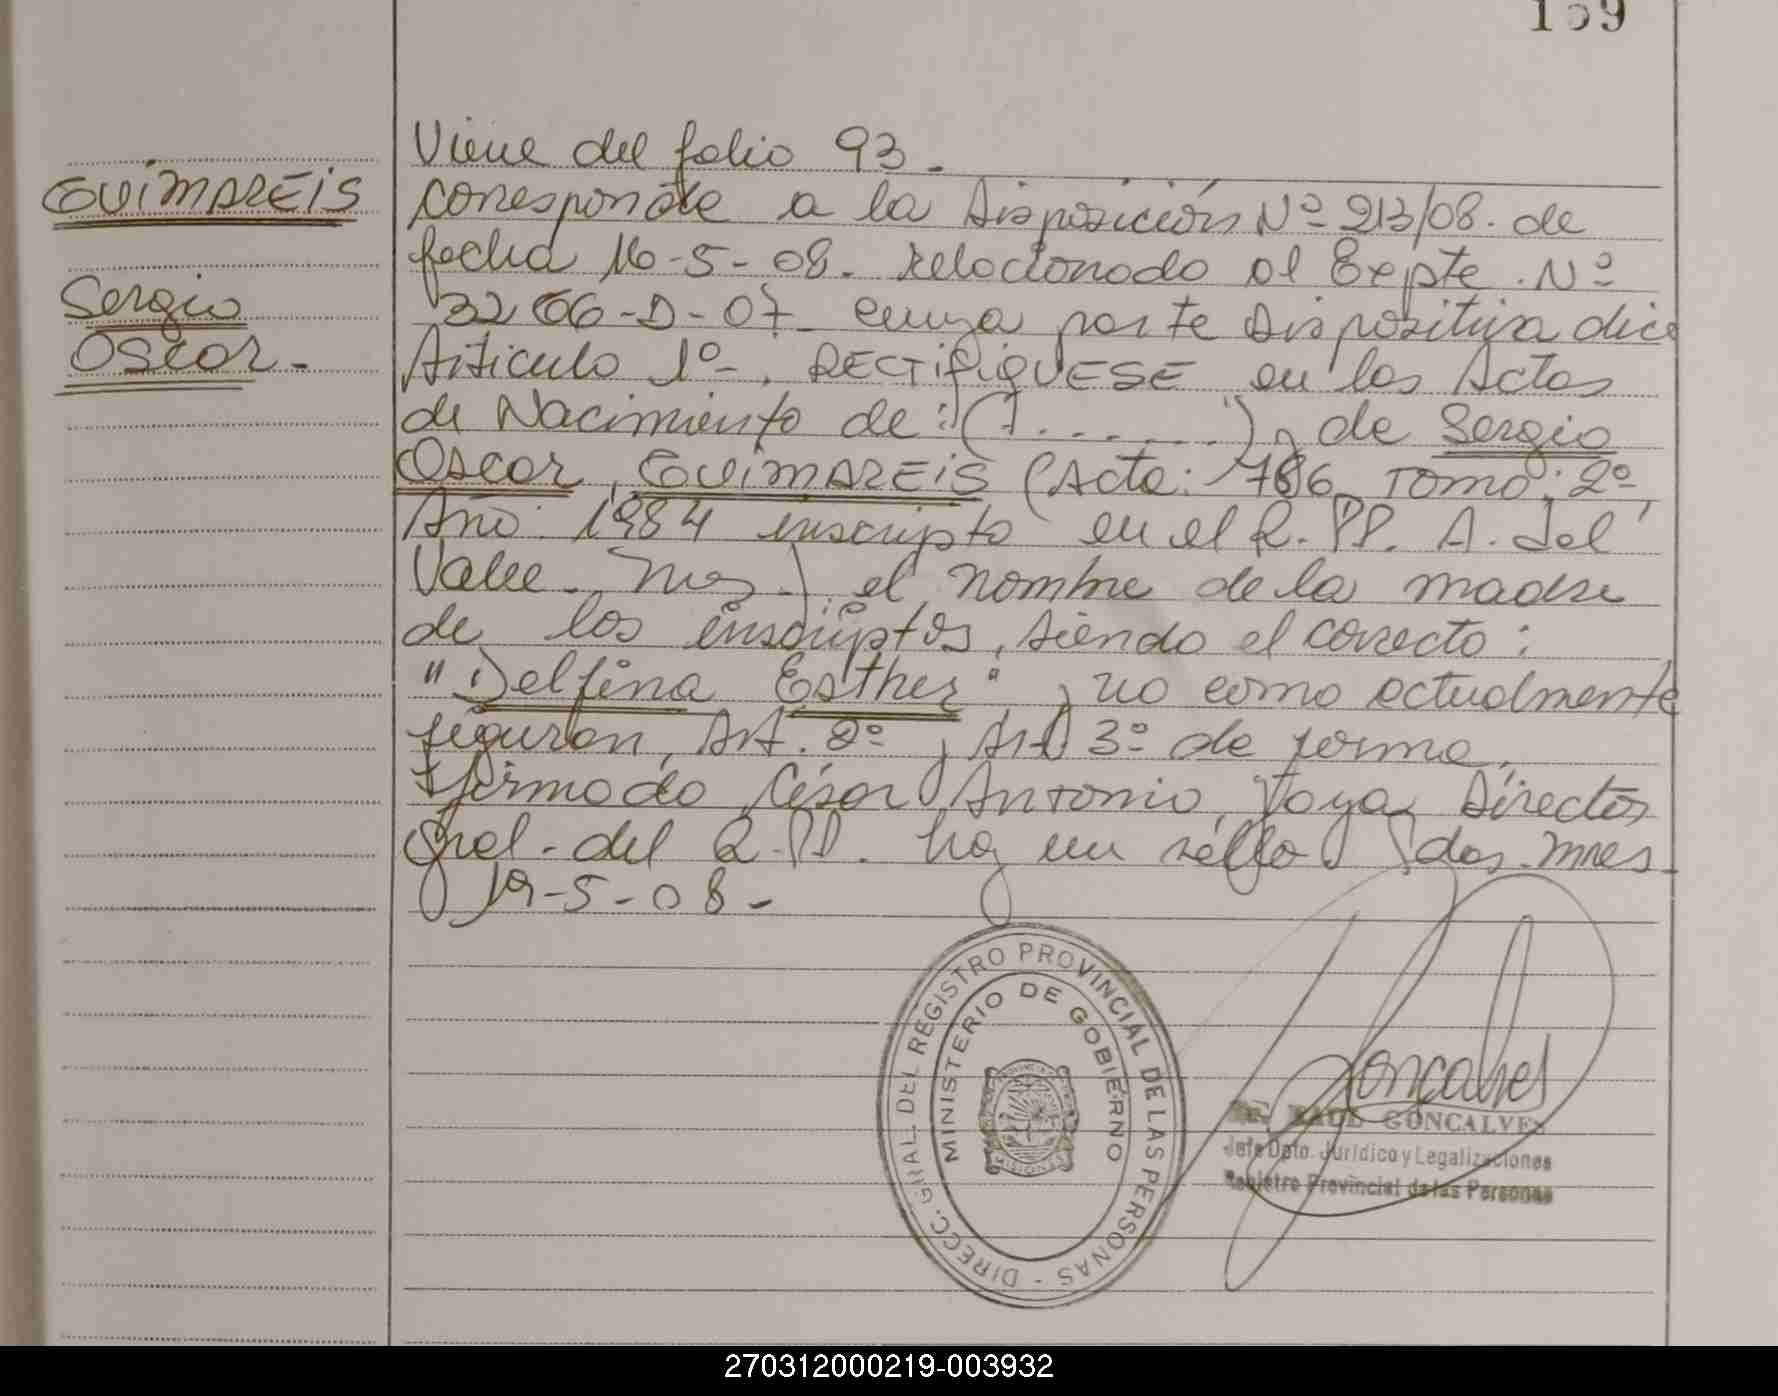 159
GUIMAREIS
Sergio
Oscar.-
Viene del folio 93.-
corresponde a la Disposición Nº 213/08. de
fecha 16-5-08. relacionado al Expte. Nº
3266-D-07 cuya parte dispositiva dice
Artículo 1º-. RECTIFIQUESE en las Actas
de Nacimiento de: (1.......) y de Sergio
Oscar, GUIMAREIS (Acta: 786, Tomo: 2º,
Año: 1984 inscripto en el R.PP. A. del
Valle - Mnes.) el nombre de la madre
de los inscriptos, siendo el correcto:
"Delfina Esther" y no como actualmente
figuran, Art. 2º y Art 3º de forma,
firmado César Antonio Director
Gral. del R.PP. hay un sello Pdas. Mnes.
19-5-08.-
DIRECC. GRAL. DEL REGISTRO PROVINCIAL DE LAS PERSONAS -
MINISTERIO DE GOBIERNO
MISIONES
Goncalves
RAUL GONCALVES
Jefe Dpto. Jurídico y Legalizaciones
Registro Provincial de las Personas
270312000219-003932